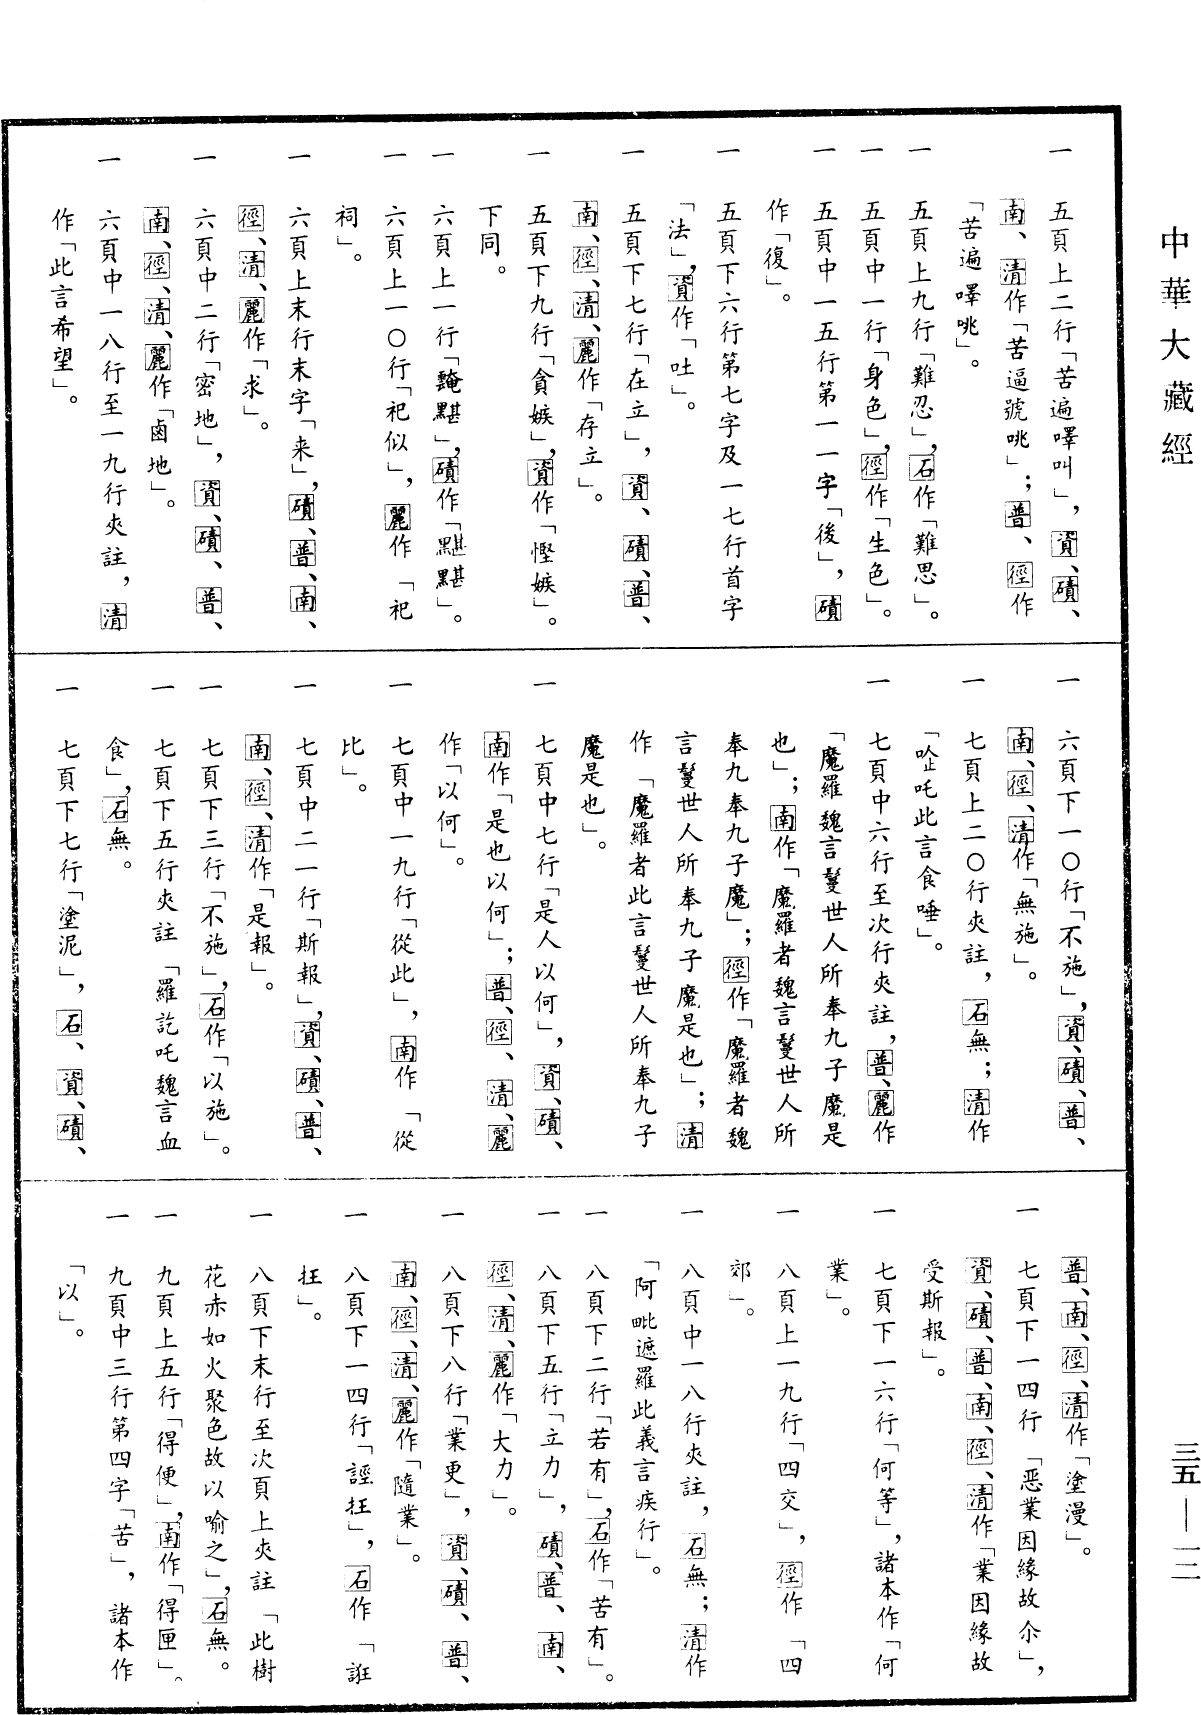 中華大藏經
一　五頁上二行「苦遍嘷叫」，資、磧、
南、清作「苦逼號咷」；普、徑作
「苦遍嘷咷」。
一　五頁上九行「難忍」，石作「難思」。
一　五頁中一行「身色」，徑作「生色」。
一　五頁中一五行第一一字「後」，磧
作「復」。
一　五頁下六行第七字及一七行首字
「法」，資作「吐」。
一　五頁下七行「在立」，資、磧、普、
南、徑、清、麗作「存立」。
一　五頁下九行「貪嫉」，資作「慳嫉」。
下同。
一　六頁上一行「黤黮」，磧作「黮黮」。
一　六頁上一〇行「祀似」，麗作「祀
祠」。
一　六頁上末行末字「来」，磧、普、南、
徑、清、麗作「求」。
一　六頁中二行「密地」，資、磧、普、
南、徑、清、麗作「鹵地」。
一　六頁中一八行至一九行夾註，清
作「此言希望」。
一　六頁下一〇行「不施」，資、磧、普、
南、徑、清作「無施」。
一　七頁上二〇行夾註，石無；清作
「吤吒此言食唾」。
一　七頁中六行至次行夾註，普、麗作
「魔羅魏言鬘世人所奉九子魔是
也」；南作「魔羅者魏言鬘世人所
奉九奉九子魔」；徑作「魔羅者魏
言鬘世人所奉九子魔是也」；清
作「魔羅者此言鬘世人所奉九子
魔是也」。
一　七頁中七行「是人以何」，資、磧、
南作「是也以何」；普、徑、清、麗
作「以何」。
一　七頁中一九行「從此」，南作「從
比」。
一　七頁中二一行「斯報」，資、磧、普、
南、徑、清作「是報」。
一　七頁下三行「不施」，石作「以施」。
一　七頁下五行夾註「羅訖吒魏言血
食」，石無。
一　七頁下七行「塗泥」，石、資、磧、
普、南、徑、清作「塗漫」。
一　七頁下一四行「惡業因緣故尒」，
資、磧、普、南、徑、清作「業因緣故
受斯報」。
一　七頁下一六行「何等」，諸本作「何
業」。
一　八頁上一九行「四交」，徑作「四
郊」。
一　八頁中一八行夾註，石無；清作
「阿毗遮羅此義言疾行」。
一　八頁下二行「若有」，石作「苦有」。
一　八頁下五行「立力」，磧、普、南、
徑、清、麗作「大力」。
一　八頁下八行「業更」，資、磧、普、
南、徑、清、麗作「隨業」。
一　八頁下一四行「誙抂」，石作「誑
抂」。
一　八頁下末行至次頁上夾註「此樹
花赤如火聚色故以喻之」，石無。
一　九頁上五行「得便」，南作「得匣」。
一　九頁中三行第四字「苦」，諸本作
「以」。
三五—一二